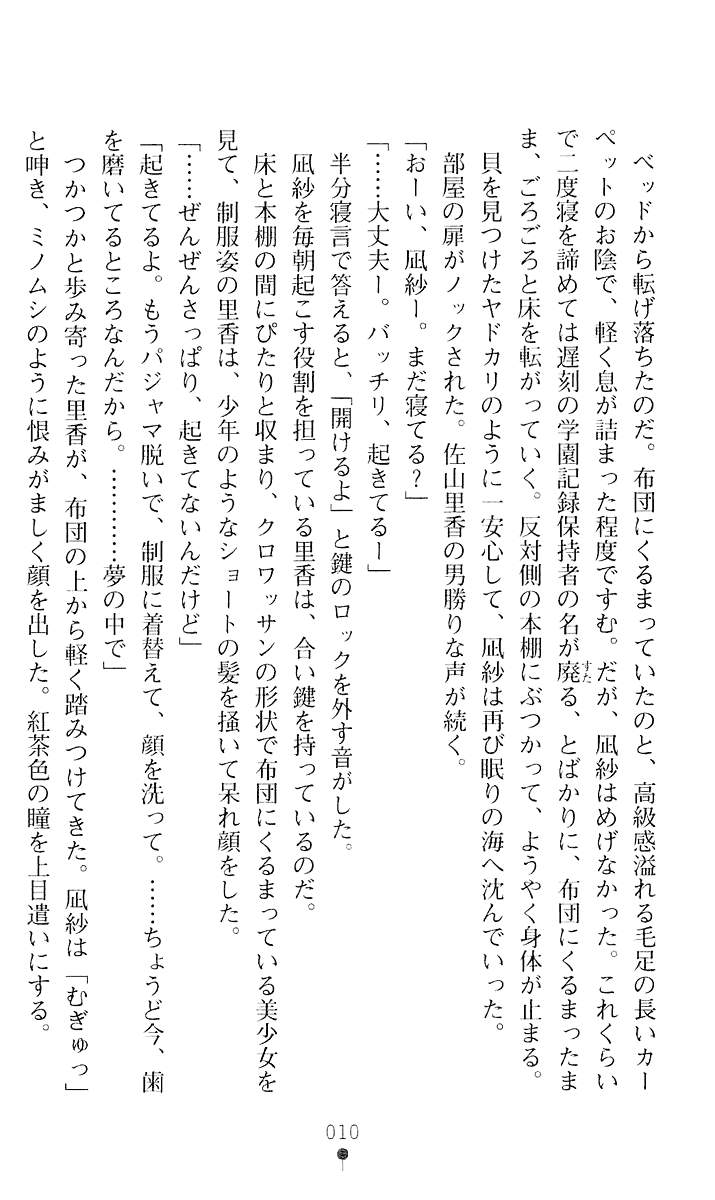 ベッドから転げ落ちたのだ。布団にくるまっていたのと、高級感溢れる毛足の長いカー
ペットのお陰で、軽く息が詰まった程度ですむ。だが、凪紗はめげなかった。これくらい
で二度寝を諦めては遅刻の学園記録保持者の名が廃る、とばかりに、布団にくるまったま
すた
ま、ごろごろと床を転がっていく。反対側の本棚にぶつかって、ようやく身体が止まる。
貝を見つけたヤドカリのように一安心して、凪紗は再び眠りの海へ沈んでいった。
部屋の扉がノックされた。佐山里香の男勝りな声が続く。
「おーい、凪紗ー。まだ寝てる?」
「……大丈夫ー。バッチリ、起きてるー」
半分寝言で答えると、「開けるよ」と鍵のロックを外す音がした。
凪紗を毎朝起こす役割を担っている里香は、合い鍵を持っているのだ。
床と本棚の間にぴたりと収まり、クロワッサンの形状で布団にくるまっている美少女を
見て、制服姿の里香は、少年のようなショートの髪を掻いて呆れ顔をした。
「……ぜんぜんさっぱり、起きてないんだけど」
「起きてるよ。もうパジャマ脱いで、制服に着替えて、顔を洗って。……ちょうど今、歯
を磨いてるところなんだから。…………夢の中で」
つかつかと歩み寄った里香が、布団の上から軽く踏みつけてきた。凪紗は「むぎゅっ」
と呻き、ミノムシのように恨みがましく顔を出した。紅茶色の瞳を上目遣いにする。
010